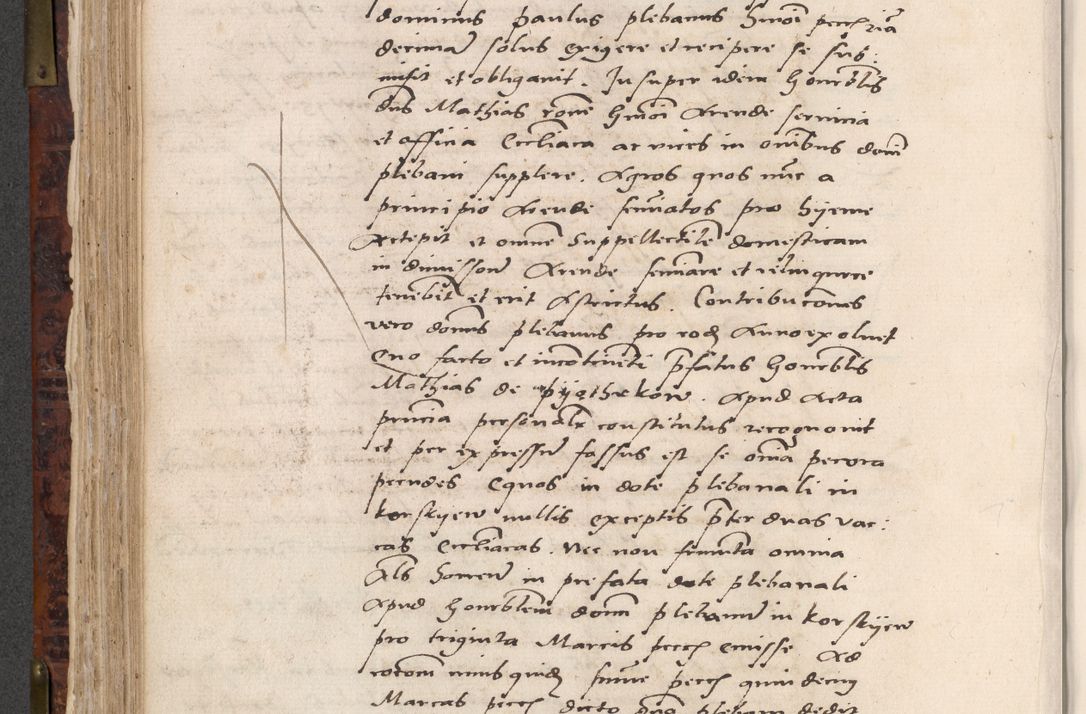 dominus paulus plebanus hmoi pecc
decimar solus exigere et recipere se sub:
misit et obligavit. Insuper idem honorblis
dns Mathias rone hmoi Arende servicia
et officia Ecclesiaca ac vices in omibus domi
plebani supplere. Agros quos nuc a
principio Arende seminatos pro hyeme
Accepit et omne Suppellectile domesticam
in dimission Arende seminare et relinquere
tenebit et erit Astrictus. Contribuciones
vero domis plebanus pro eod Anno exolvet
Quo facto et incontinenti pfatus honorblis
Mathias de pyothrkow. Apud Acta
pncia personalr constitutus recognovit
et per expressu fassus est se omia pecora
pecudes Equos in dote plebanali in
korssyew nullis exceptis pter duas vac:
cas Ecclesiacas. Nec non frumta omnia
Als in prefata dote plebanali
Apud honorblem domi plebanu in korssyew
pro triginta Marcis pecc emisse Ad
racom cuius quid sume pecc quindecim
Marcas pecc dicto dno plebano dedit